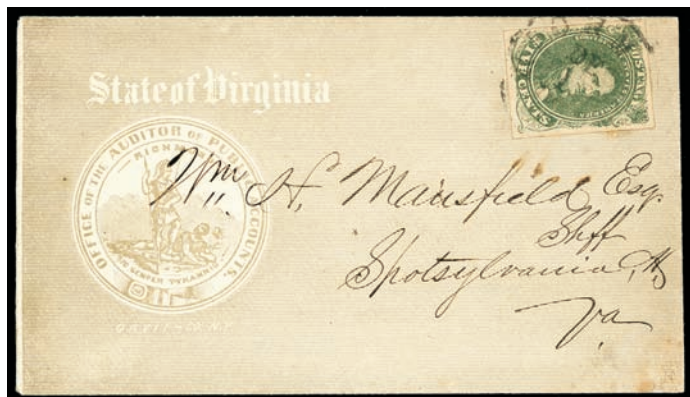 State of Virginia
OFFICE OF THE AUDITOR OF PUBLIC ACCOUNTS.
RICHMOND
SIC SEMPER TYRANNIS
Wm. H. Mansfield Esq.
Shff
Spotsylvania
Va
FIVE CENTS
POSTAGE